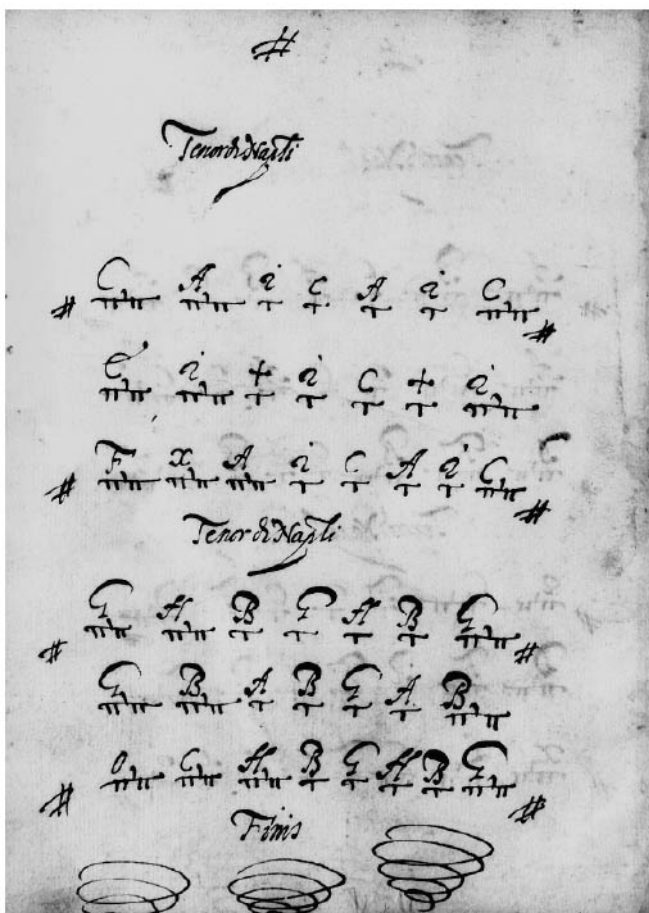 #
Tenor di Napli
# C A i C A i C #
C i + i C + i
# F X A i C A i C #
Tenor di Napli
# G H B G H B G #
G B A B G A B
# O C H B G H B G #
Finis